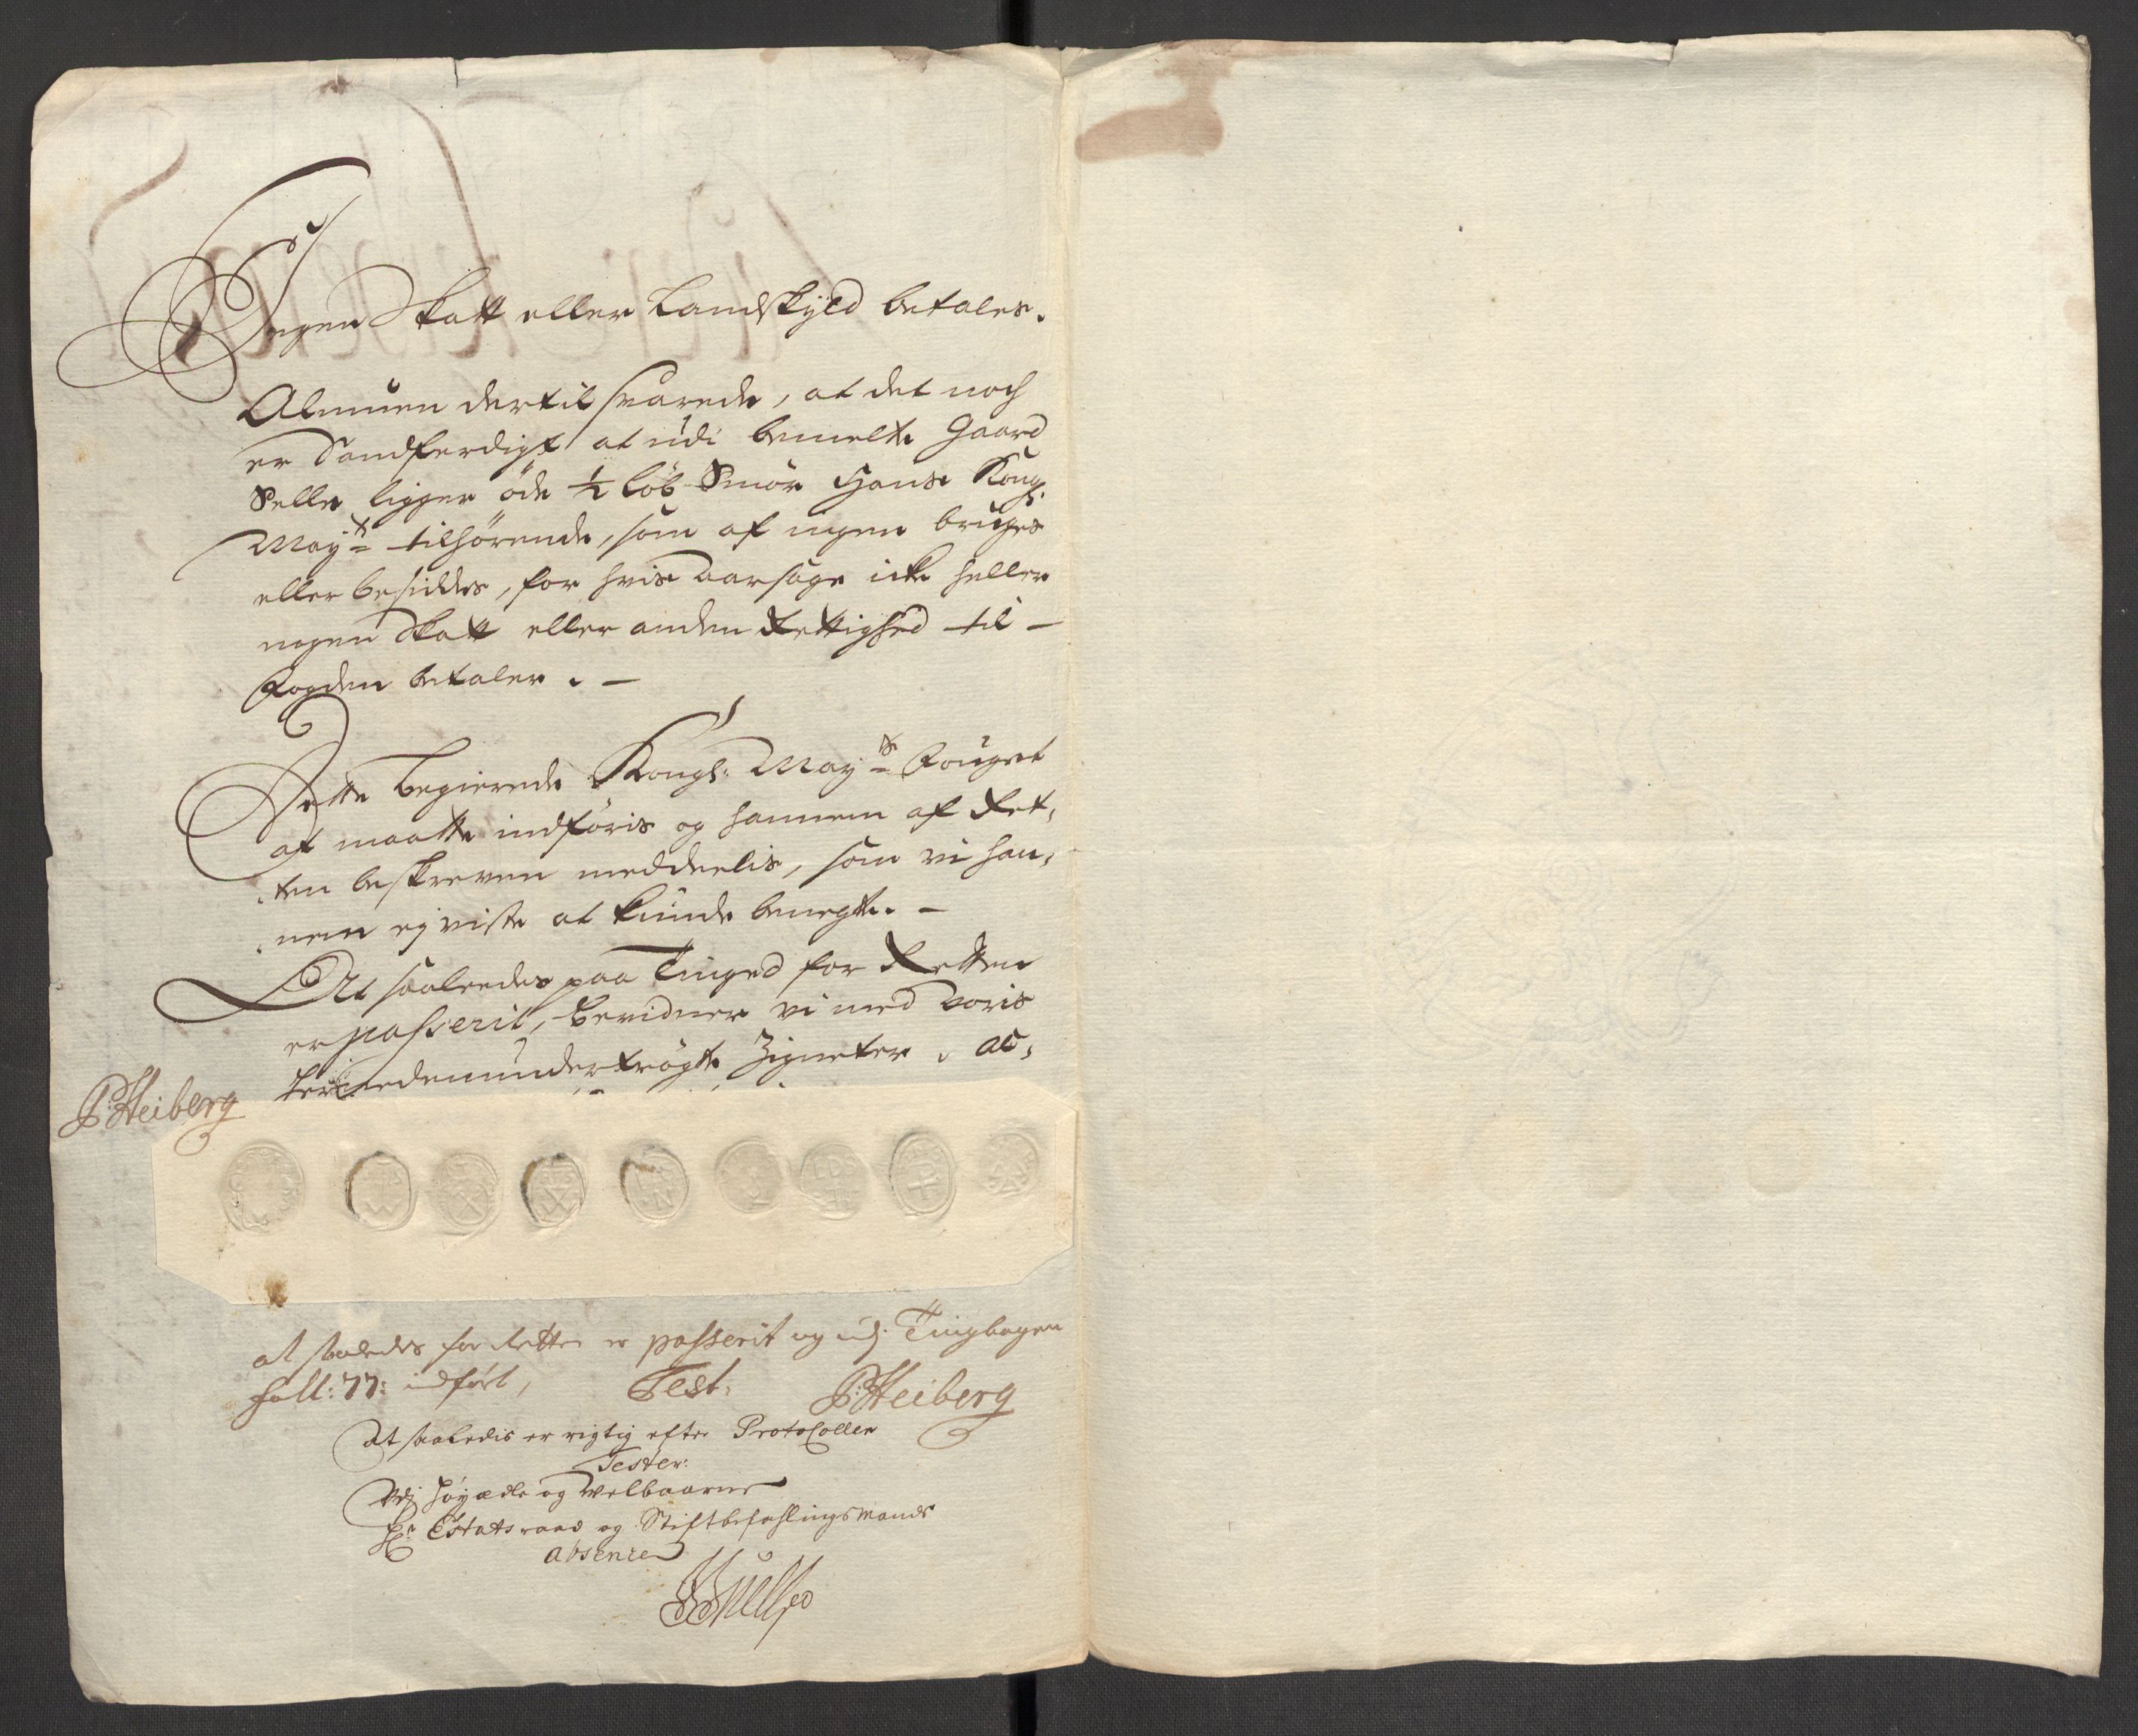 Ingen Skatt eller Landskyld betales.
Almuen dertil svarede, at det noch
er Sandferdigt at udi bemelte Gaard
Selle ligger öde ½ Löb Smör Hans Kongl:
Mayts tilhörende, som af ingen bruges
eller besiddes, for hvis aarsage icke heller
nogen Skatt eller anden Rettighed til
Fogden betaler. –
Dette begierede Kongl: Mayts Fouget
at maatte indföris og hannem af Ret,
ten beskreven meddeelis, som vi han,
nem ej viste at kunde benegte. –
At saaledes paa Tinged for Retten
er passerit, bevidner vi med voris
hernedenundertrögte Zigneter. Ac,
P: Heiberg
at saaledes for Retten er passerit og udj Tingbogen
foll: 77: indfört, Test: P: Heiberg
At saaledis er rigtig efter Protocollen
Tester:
Udj Höyædle og Velbaarne
Hr Estatsraad og Stiftbefahlingsmands
absence